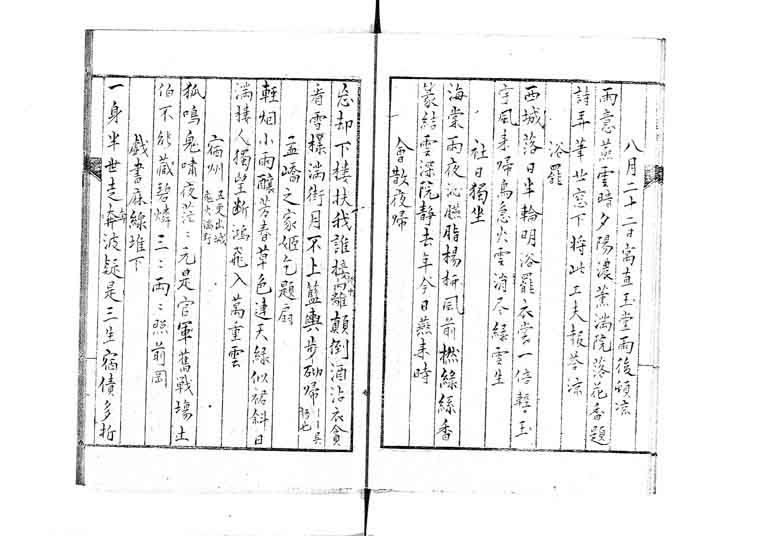 八月二十二日寓直玉堂雨後頓涼
雨意蒸雲暗夕陽濃薰滿院落花香題
詩弄筆北窓下將此工夫報答涼
浴罷
西城落日半輪明浴罷衣裳一倍輕玉
宇風來歸鳥急火雲消尽綠雲生
社日獨坐
海棠雨夜沁臙脂楊柳風前撚綠絲香
篆結雲深院静去年今日燕來時
會散夜歸
忘却下樓扶我誰接䍦顛倒酒沾衣貪
看雪樣滿街月不上籃輿步砌歸
孟嶠之家姬乞題扇
輕烟小雨釀芳春草色連天綠似裙斜日
滿樓人獨望斷鴻飛入萬重雲
宿州
五更出城
鬼火滿野
狐鳴鬼嘯夜茫〻元是官軍舊戰場土
伯不能藏碧燐三〻兩〻照前岡
戯書麻線堆下
一身半世走奔波疑是三生宿債多折